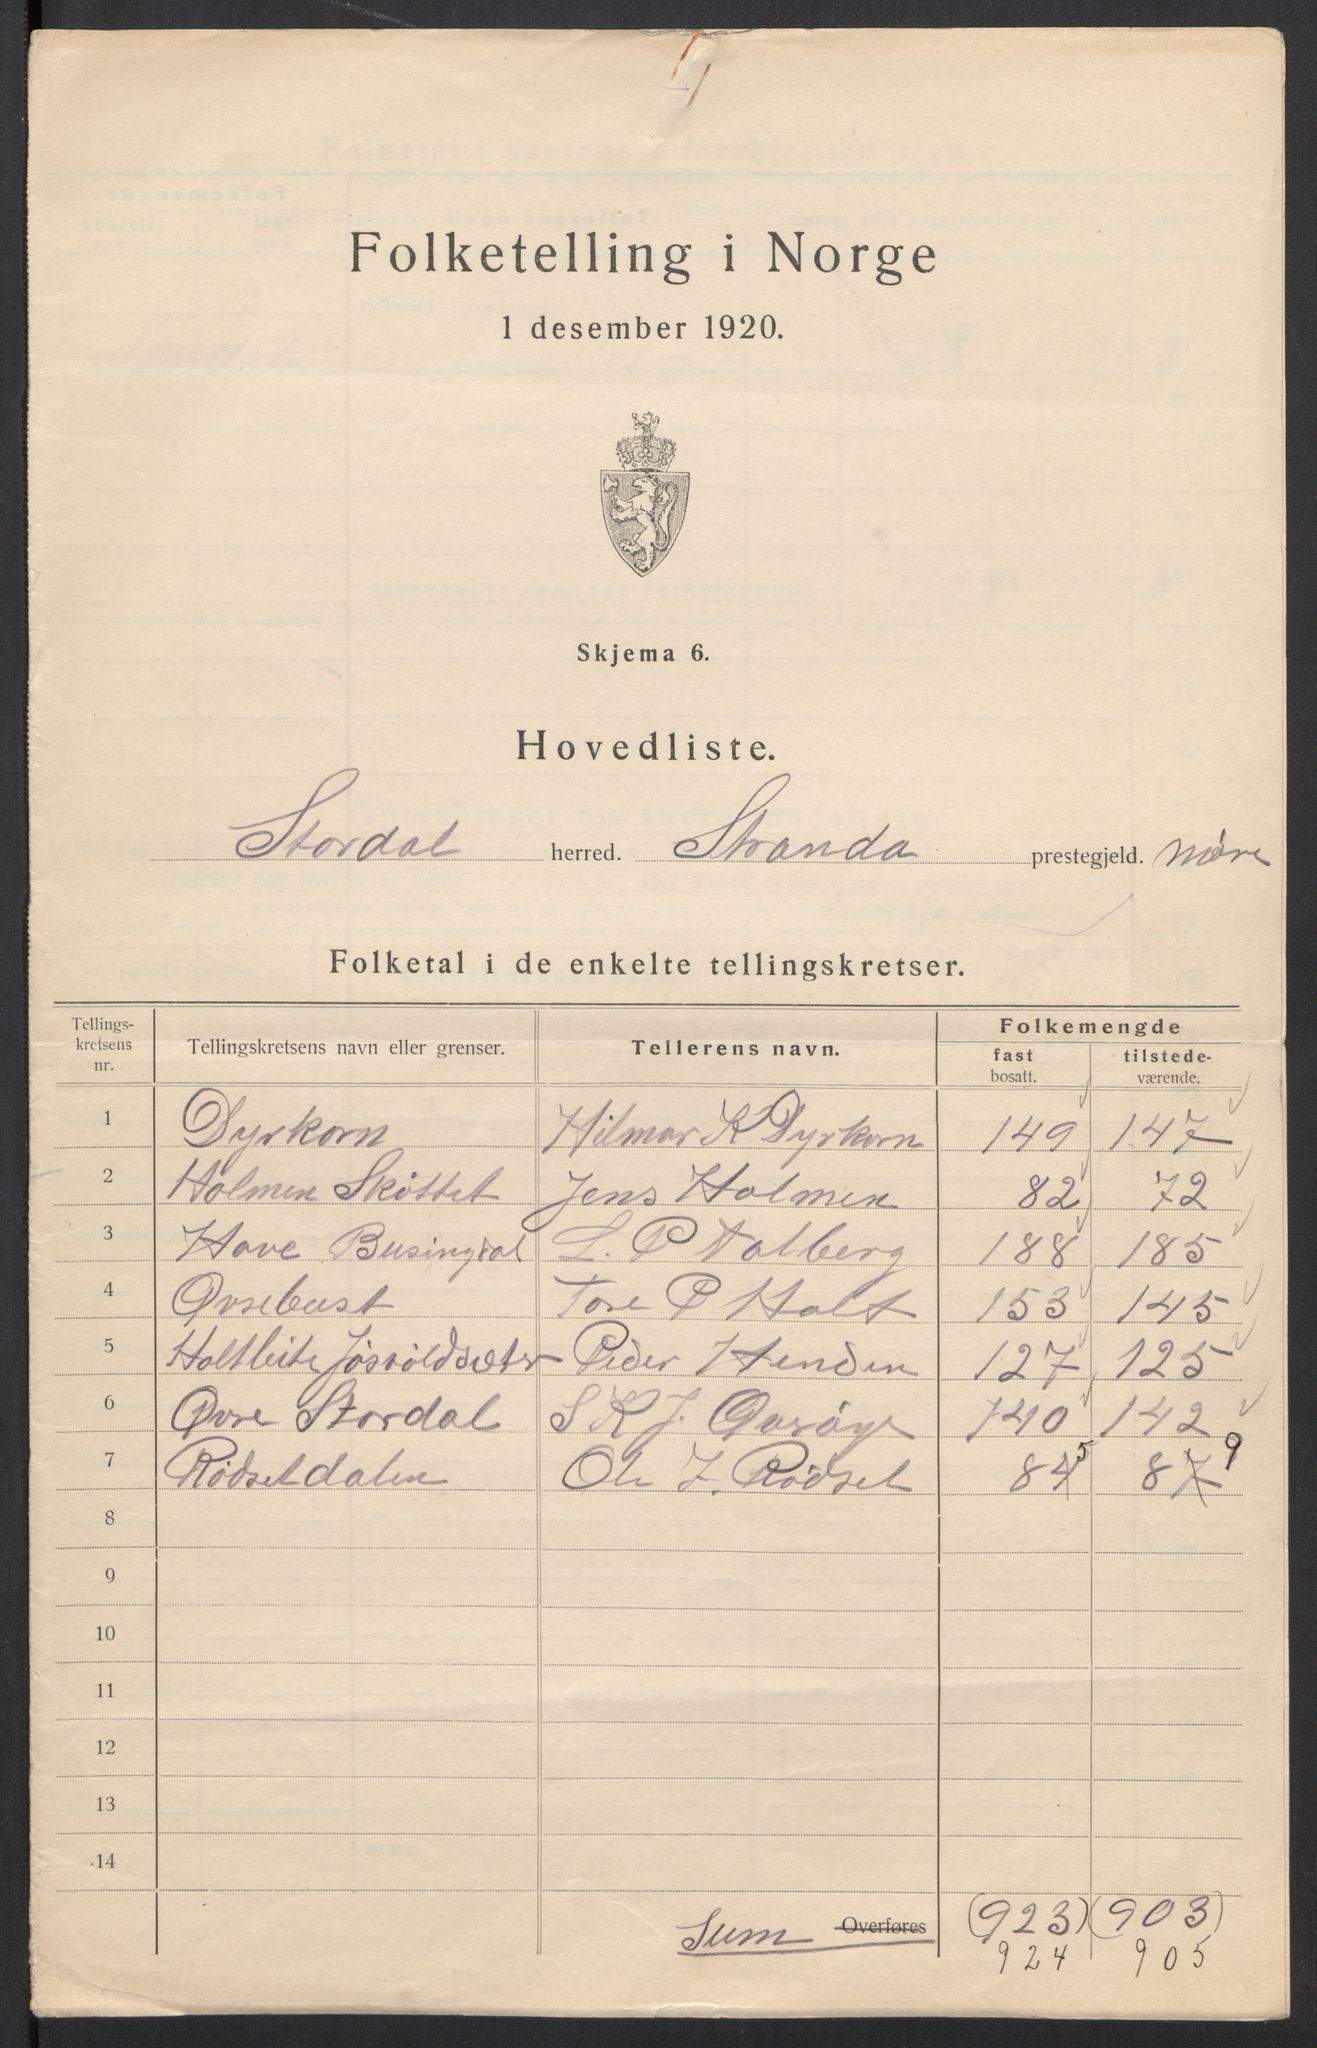 Folketelling i Norge
1 desember 1920.
Skjema 6.
Hovedliste.
Stordal herred. Stranda prestegjeld. Møre
Folketal i de enkelte tellingskretser.
Tellings-kretsens nr. Tellingskretsens navn eller grenser. Tellerens navn. Folkemengde fast bosatt. tilstede-værende.
1 Dyrkorn Hilmar K Dyrkorn 149 147
2 Holmen Skøttet Jens Holmen 82 72
3 Hove Busingdal L. P Aalberg 188 185
4 Øvsebust Tore P Holt 153 145
5 Holtleite Jøsvoldsæter Peder Henden 127 125
6 Øvre Stordal S K J. 140 142
7 Rødsetdalen Ole Z. Rødset 84 5 87 9
8
9
10
11
12
13
14
Sum Overføres (923) (903)
924 905